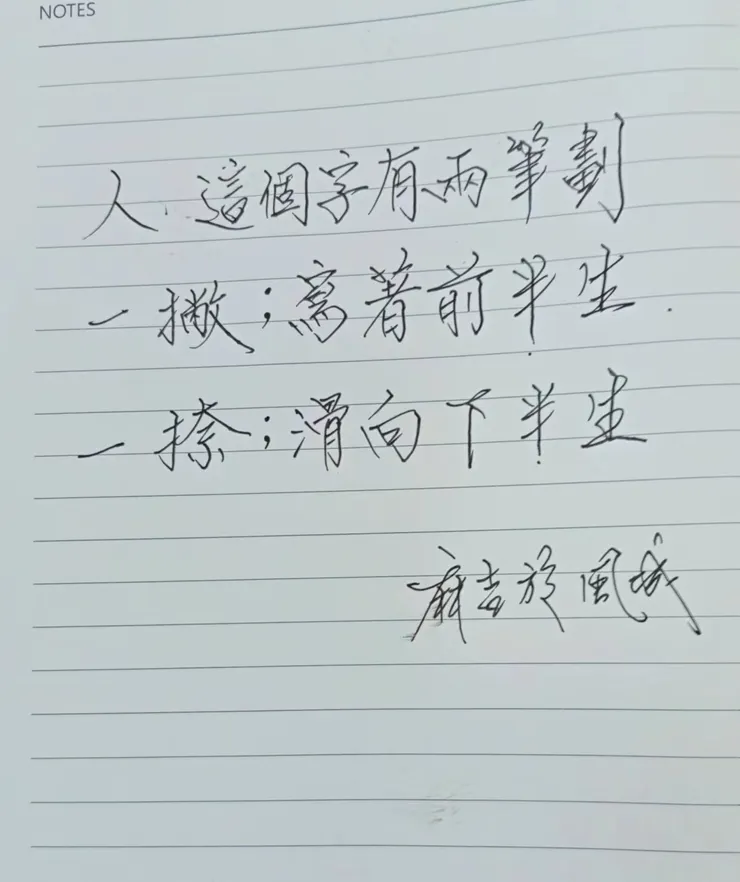 NOTES
人.這個字有兩筆劃
一撇;寫著前半生.
一捺;滑向下半生
麻吉旋風城